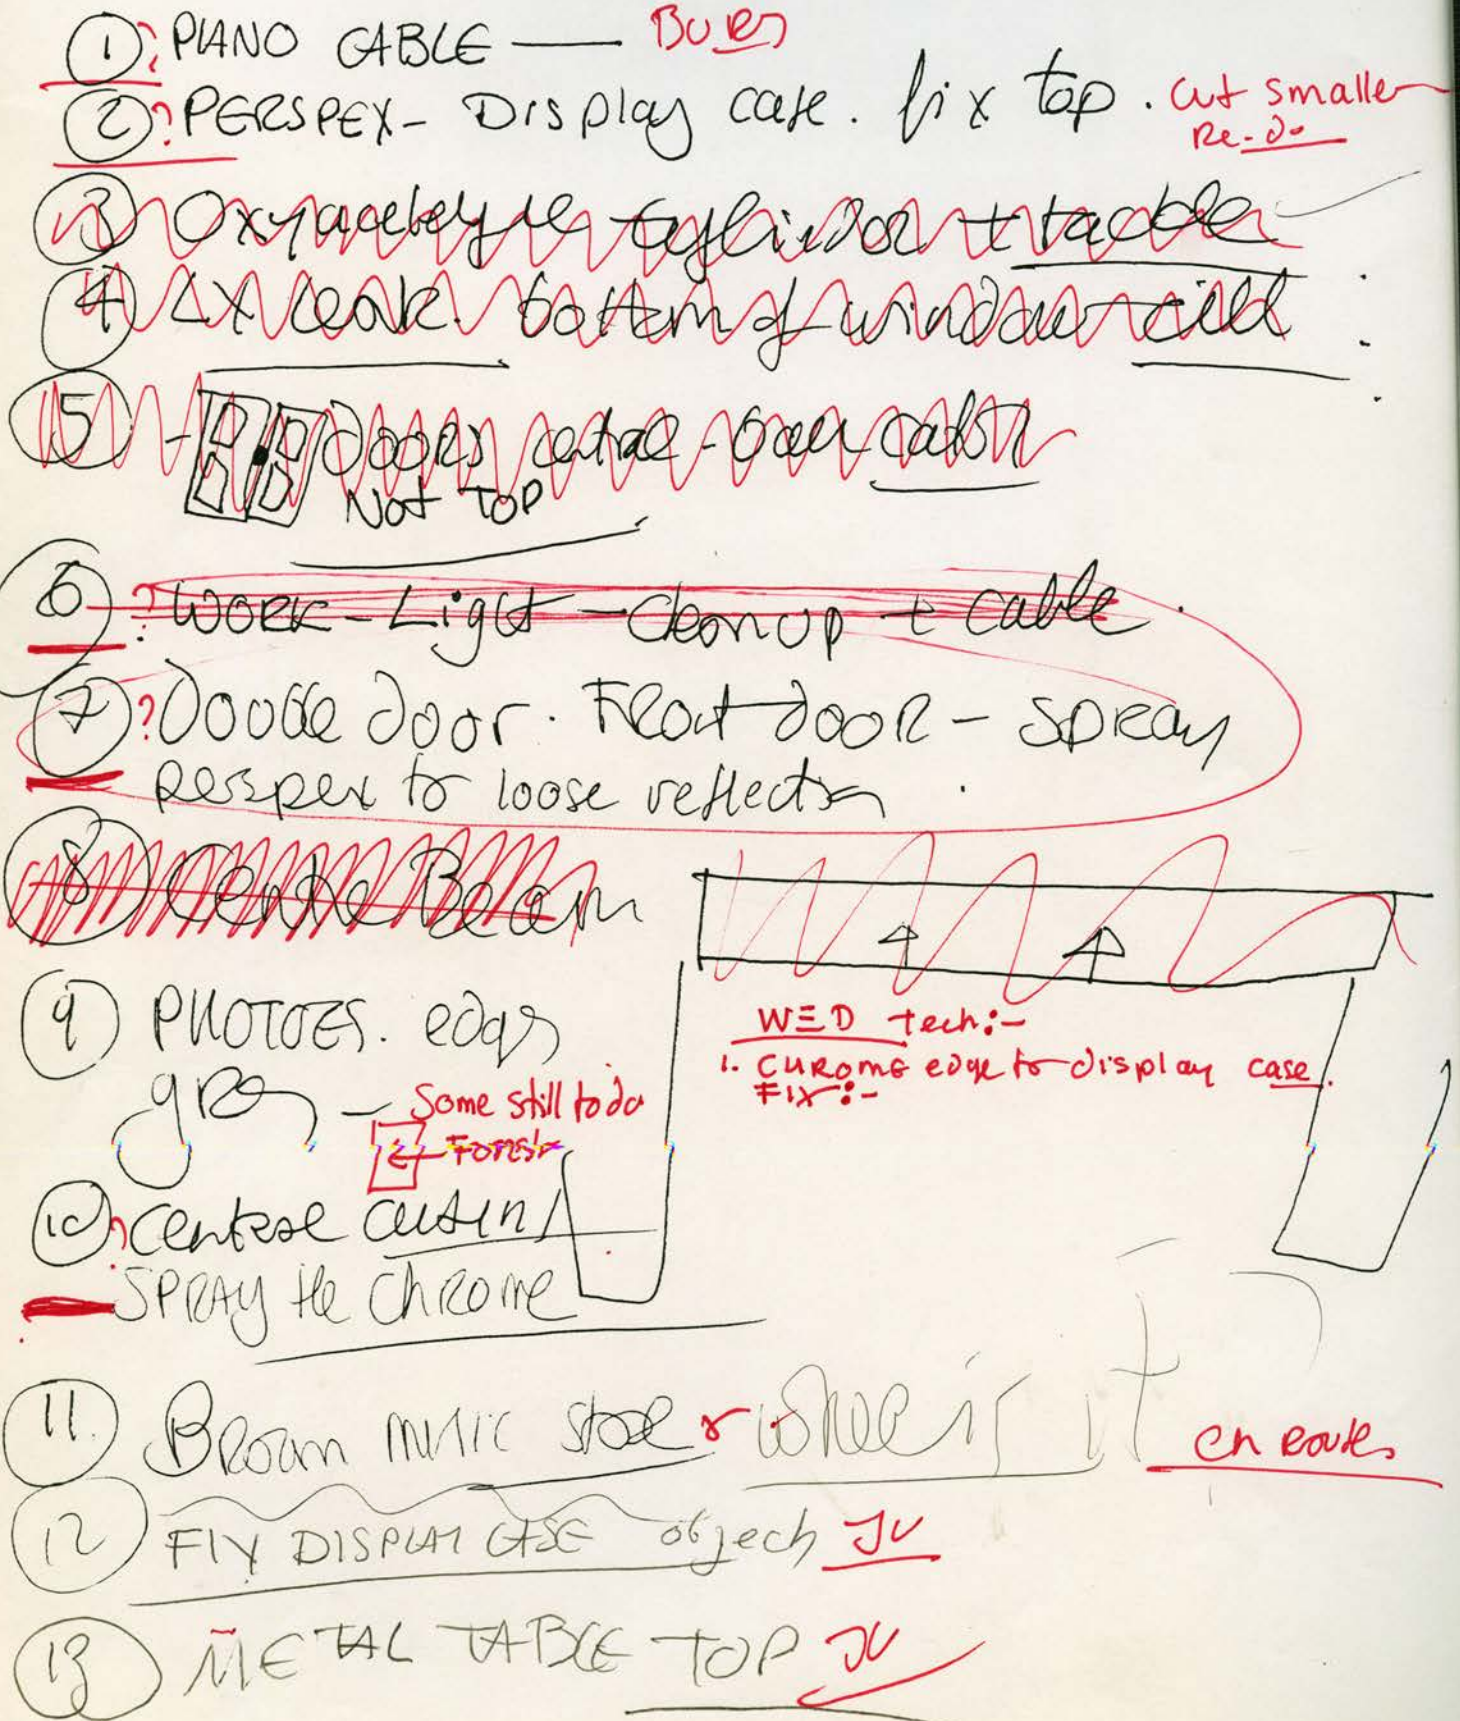 1 ? PIANO CABLE —
2 ? PERSPEX - Display case. fix top. Cut smaller
Re-do
3 Oxyacetylene + trackle
4 LX leak. bottom of window cill
5 - Doors central - over
Not TOP
6 ? WORK - Light - Clean up + cable
7 ? Double door. Front door - SPRay
Perspex to loose reflection.
8 Centre Beam
9 PHOTOES. edgs
grey — Some still to do
← Forest
WED tech:-
1. CHROME edge to display case.
FIX:-
10 ? Central
SPRAY the ChROME
11. Brown music stool where is it? en route
12 FLY DISPLAY CASE objects JV
13 METAL TABLE TOP JV